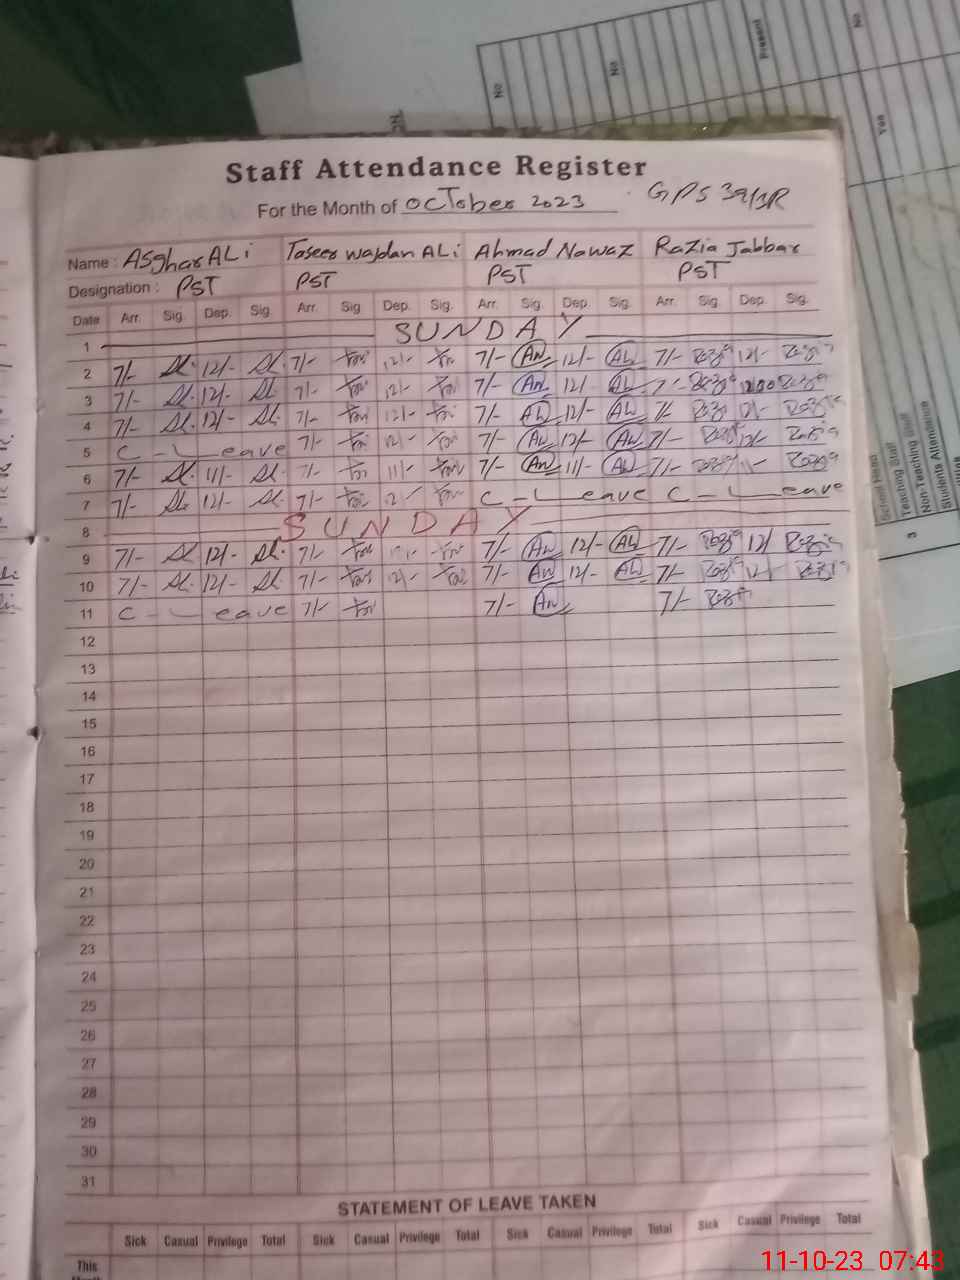 No
No
Present
No
Yes
Staff Attendance Register
For the Month of OcTober 2023
GPS 39/3R
Name : Asghar ALi Taseer wajdan ALi Ahmad Nawaz Razia Jabbar
Designation : PST PST PST PST
Date Arr. Sig. Dep. Sig. Arr. Sig. Dep. Sig. Arr. Sig. Dep. Sig. Arr. Sig. Dep. Sig.
1 SUNDAY
2 7/- 12/- 7/- 12/- 7/- AN 12/- AN 7/- Razia 12/- Razia
3 7/- 12/- 7/- 12/- 7/- AN 12/ AN 7/- Razia 12/00 Razia
4 7/- 12/- 7/- 12/- 7/- AN 12/- AN 7/- Razia 12/- Razia
5 C-Leave 7/- 12/- 7/- AN 12/- AN 7/- Razia 12/- Razia
6 7/- 11/- 7/- 11/- 7/- AN 11/- AN 7/- Razia 11/- Razia
7 7/- 12/- 7/- 12/- C-Leave C-Leave
8 SUNDAY
9 7/- 12/- 7/- 7/- AN 12/- AN 7/- Razia 12/ Razia
10 7/- 12/- 7/- 12/- 7/- AN 12/- AN 7/- Razia 12/- Razia
11 C-Leave 7/- 7/- AN 7/- Razia
12
13
14
15
16
17
18
19
20
21
22
23
24
25
26
27
28
29
30
31
STATEMENT OF LEAVE TAKEN
Sick Casual Privilege Total Sick Casual Privilege Total Sick Casual Privilege Total Sick Casual Privilege Total
This
School Head
Teaching Staff
Non-Teaching Staff
Students Attendance
3
11-10-23 07:43